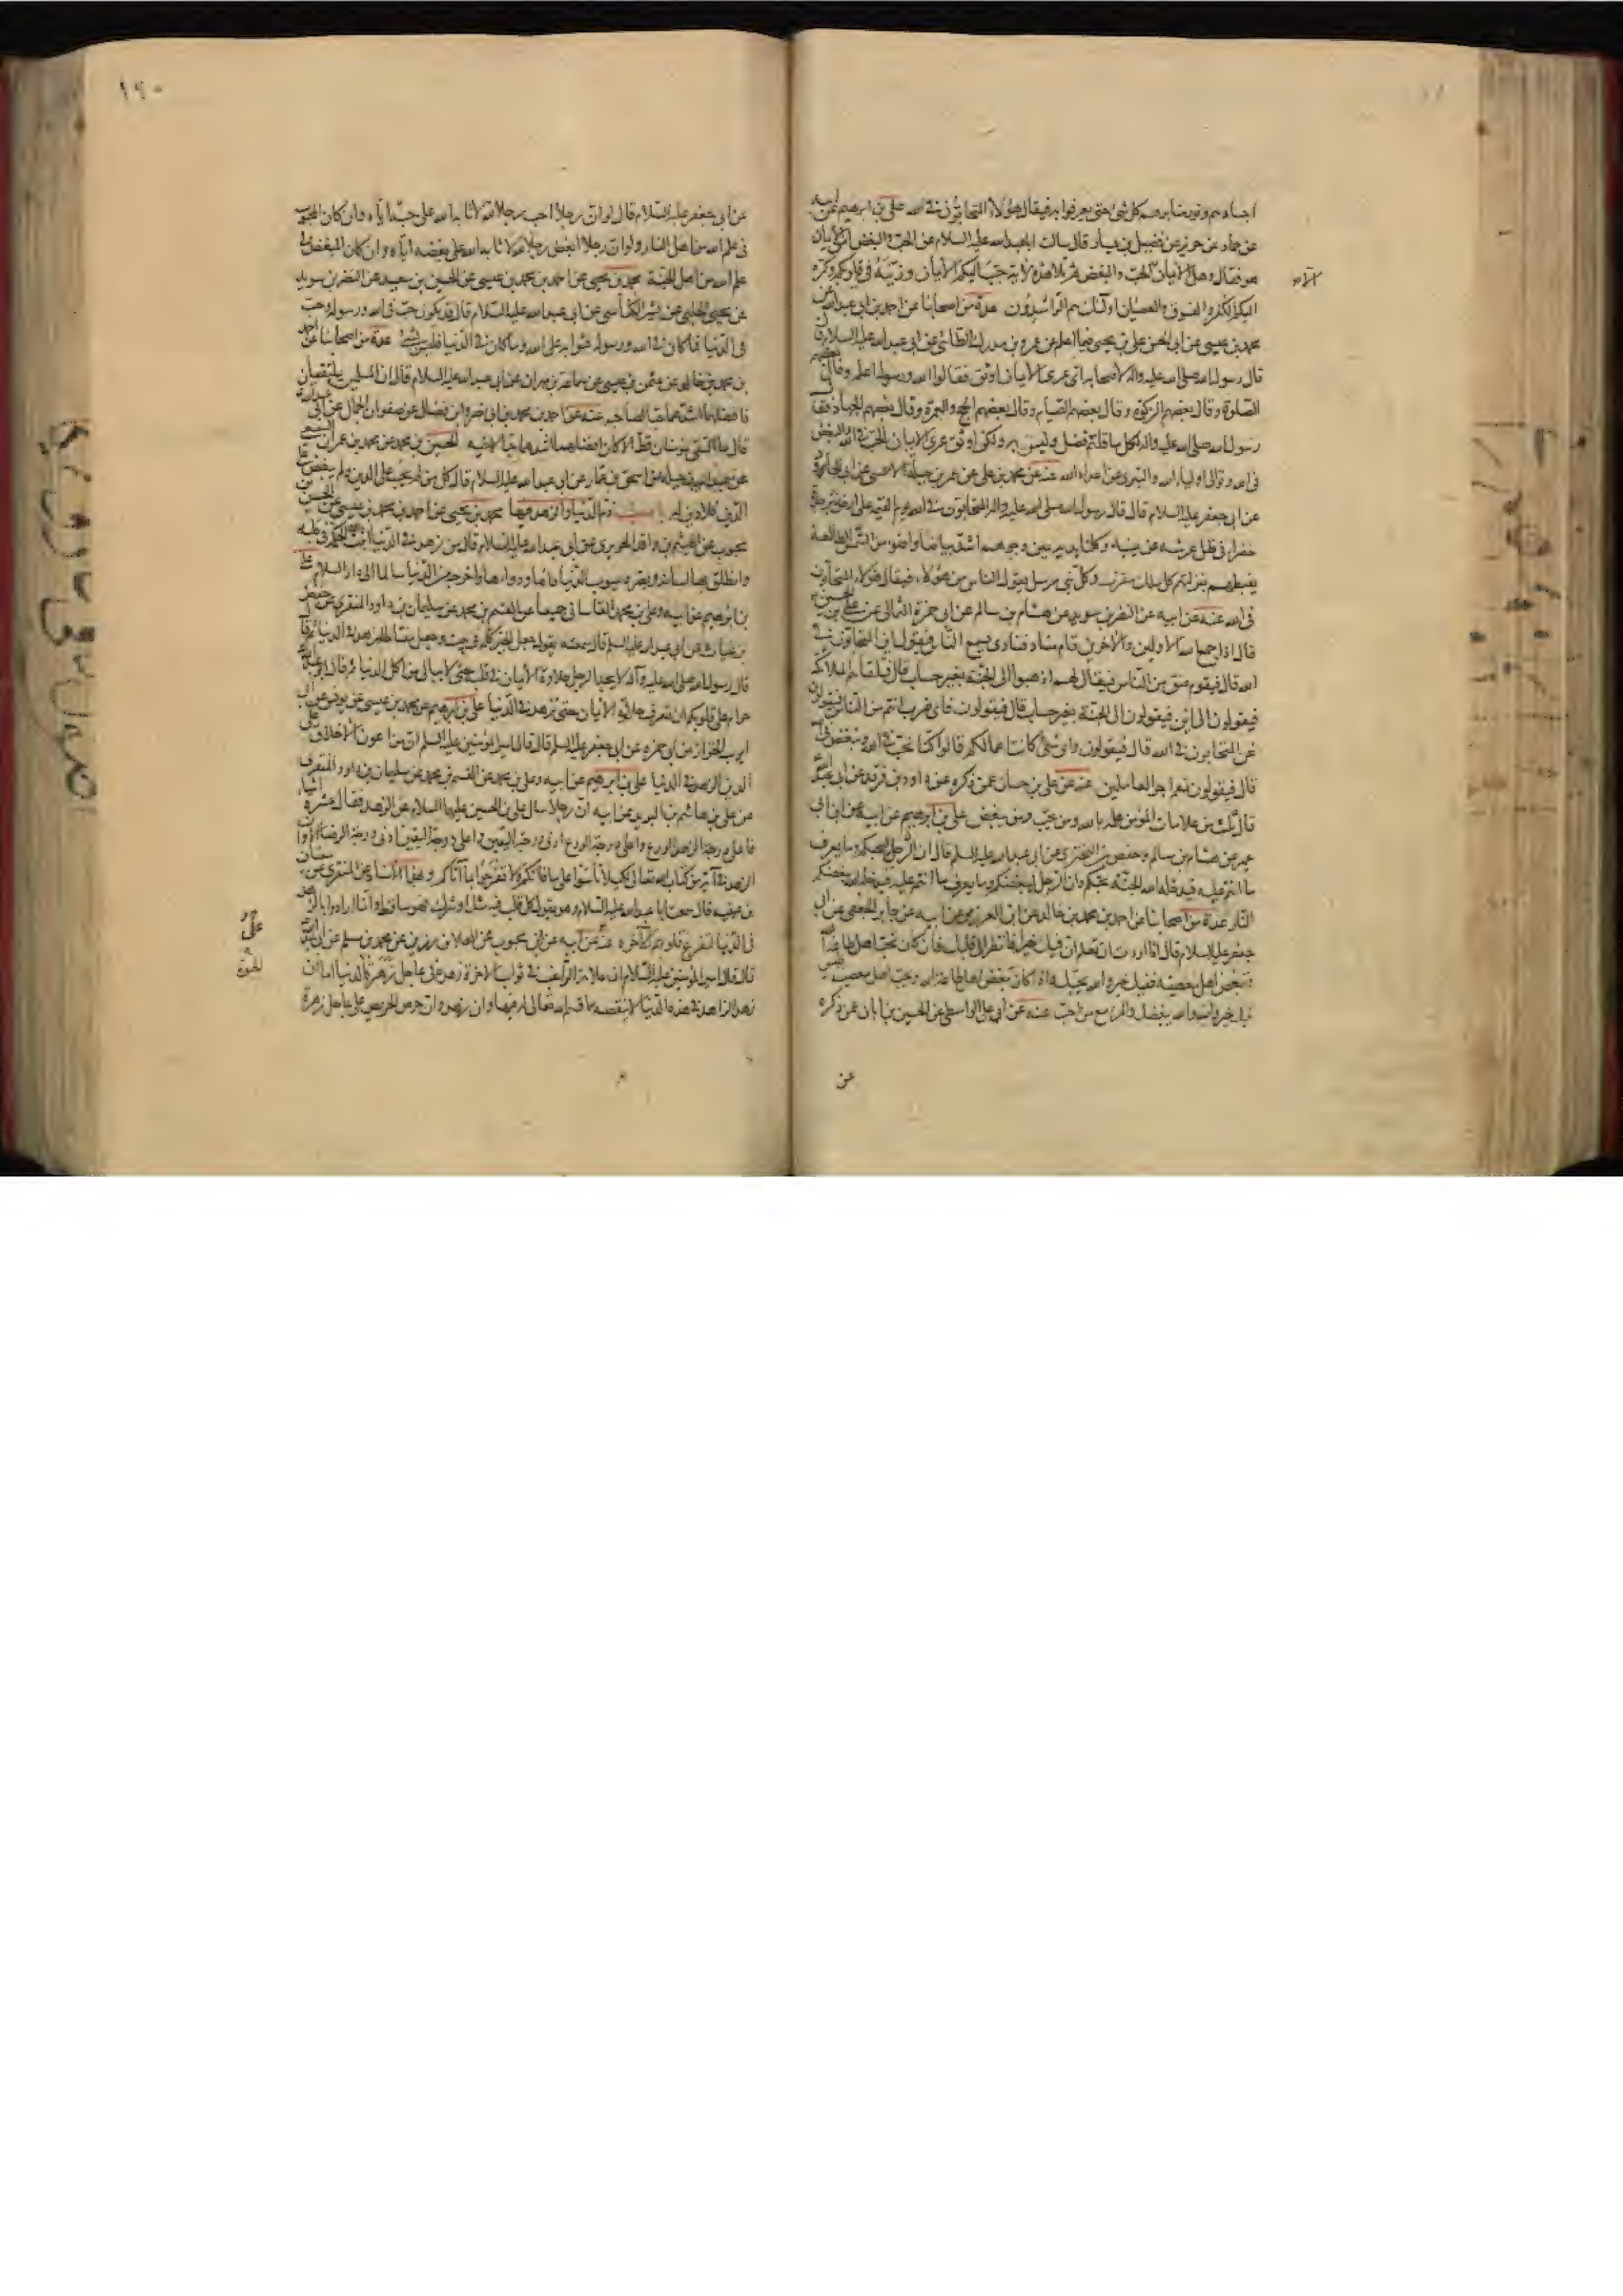 اجسادهم ونور منابرهم كل شئ حتى يعرفوا به فيقال هؤلاء المتحابون في الله علي بن ابرهيم عن ابيه
عن حماد عن حريز عن فضيل بن يسار قال سالت ابا عبد الله عليه السلام عن الحب والبغض امن الأيمان
هو فقال وهل الأيمان الا الحب والبغض ثم تلا هذه الاية حبب اليكم الأيمان وزينه في قلوبكم وكره
اليكم الكفر والفسوق والعصيان اولئك هم الراشدون عدة من اصحابنا عن احمد بن ابي عبد الله عن
محمد بن عيسى عن ابي الحسن علي بن يحيى فيما اعلم عن عمرو بن مدرك الطائي عن ابي عبد الله عليه السلام
قال رسول الله صلى الله عليه واله لأصحابه اي عرى الأيمان اوثق فقالوا الله ورسوله اعلم وقال بعضهم
الصلوة وقال بعضهم الزكوة وقال بعضهم الصيام وقال بعضهم الحج والعمرة وقال بعضهم الجهاد فقال
رسول الله صلى الله عليه واله لكل ما قلتم فضل وليس به ولكن اوثق عرى الايمان الحب في الله والبغض
في الله وتوالى اولياء الله والتبري من اعداء الله عنه عن محمد بن علي عن عمر بن جبلة الاحمسي عن ابي الجارود
عن ابي جعفر عليه السلام قال قال رسول الله صلى الله عليه واله المتحابون في الله يوم القيمة على ارض زبرجدة
خضراء في ظل عرشه عن يمينه وكلتا يديه يمين وجوههم اشد بياضا واضوء من الشمس الطالعة
يغبطهم بمنزلتهم كل ملك مقرب وكل نبي مرسل يقول الناس من هؤلاء فيقال هؤلاء المتحابون
في الله عنه عن ابيه عن النضر بن سويد عن هشام بن سالم عن ابي حمزة الثمالي عن علي بن الحسين
قال اذا جمع الله الاولين والآخرين قام مناد فنادى يسمع الناس فيقول اين المتحابون في
الله قال فيقوم عنق من الناس فيقال لهم اذهبوا الى الجنة بغير حساب قال فتلقاهم الملائكة
فيقولون الى اين فيقولون الى الجنة بغير حساب قال فيقولون فاي ضرب انتم من الناس فيقولون
نحن المتحابون في الله قال فيقولون واي شئ كانت اعمالكم قالوا كنا نحب في الله ونبغض في الله
قال فيقولون نعم اجر العاملين عنه عن علي بن حسان عمن ذكره عن داود بن فرقد عن ابي عبد الله
قال ثلث من علامات المؤمن علمه بالله ومن يحب ومن يبغض علي بن ابرهيم عن ابيه عن ابن ابي
عمير عن هشام بن سالم وحفص بن البختري عن ابي عبد الله عليه السلم قال ان الرجل ليحبكم وما يعرف
ما انتم عليه فيدخله الله الجنة بحبكم وان الرجل ليبغضكم وما يعرف ما انتم عليه فيدخله الله ببغضكم
النار عدة من اصحابنا عن احمد بن محمد بن خالد عن ابن العرزمي عن ابيه عن جابر الجعفي عن ابي
جعفر عليه السلام قال اذا اردت ان تعلم ان فيك خيرا فانظر الى قلبك فان كان يحب اهل طاعة الله
ويبغض اهل معصيته ففيك خير والله يحبك واذا كان يبغض اهل طاعة الله ويحب اهل معصيته فليس
فيك خير والله يبغضك والمرء مع من احب عنه عن ابي علي الواسطي عن الحسين بن ابان عمن ذكره
عن
١٩٠
عن ابي جعفر عليه السلام قال لو ان رجلا احب رجلا لله لاثابه الله على حبه اياه وان كان المحبوب
في علم الله من اهل النار ولو ان رجلا ابغض رجلا لله لاثابه الله على بغضه اياه وان كان المبغض في
علم الله من اهل الجنة محمد بن يحيى عن احمد بن محمد بن عيسى عن الحسين بن سعيد عن النضر بن سويد
عن يحيى الحلبي عن بشير الكناسي عن ابي عبد الله عليه السلام قال قد يكون حب في الله ورسوله وحب
في الدنيا فما كان في الله ورسوله فثوابه على الله وما كان في الدنيا فليس بشئ عدة من اصحابنا عن احمد
بن محمد بن خالد عن عثمن بن عيسى عن سماعة بن مهران عن ابي عبد الله عليه السلام قال ان المسلمين يلتقيان
فافضلهما اشدهما حبا لصاحبه عنه عن احمد بن محمد بن ابي نصر وابن فضال عن صفوان الجمال عن ابي عبد الله
قال ما التقى مؤمنان قط الا كان افضلهما اشدهما حبا لاخيه الحسين بن محمد عن محمد بن عمران السبيعي
عن عبد الله بن جبلة عن اسحق بن عمار عن ابي عبد الله عليه السلام قال كل من لم يحب على الدين ولم يبغض على
الدين فلا دين له باب ذم الدنيا والزهد فيها محمد بن يحيى عن احمد بن محمد بن عيسى عن الحسن بن
محبوب عن الهيثم بن واقد الحريري عن ابي عبد الله عليه السلام قال من زهد في الدنيا اثبت الله الحكمة في قلبه
وانطق بها لسانه وبصره عيوب الدنيا داءها ودواءها واخرجه من الدنيا سالما الى دار السلام علي
بن ابرهيم عن ابيه وعلي بن محمد القاساني جميعا عن القسم بن محمد عن سليمان بن داود المنقري عن حفص
بن غياث عن ابي عبد الله عليه السلم قال سمعته يقول جعل الخير كله في بيت وجعل مفتاحه الزهد في الدنيا ثم قال
قال رسول الله صلى الله عليه وآله لا يجد الرجل حلاوة الأيمان في قلبه حتى لا يبالي من اكل الدنيا ثم قال ابو عبد الله
حرام على قلوبكم ان تعرف حلاوة الأيمان حتى تزهد في الدنيا علي بن ابرهيم عن محمد بن عيسى عن يونس عن ابي
ايوب الخزاز عن ابي حمزة عن ابي جعفر عليه السلم قال قال امير المؤمنين عليه السلم ان من اعون الأخلاق على
الدين الزهد في الدنيا علي بن ابرهيم عن ابيه وعلي بن محمد عن القسم بن محمد عن سليمان بن داود المنقري
عن علي بن هاشم بن البريد عن ابيه ان رجلا سال علي بن الحسين عليهما السلام عن الزهد فقال عشرة اشياء
فاعلى درجة الزهد ادنى درجة الورع واعلى درجة الورع ادنى درجة اليقين واعلى درجة اليقين ادنى درجة الرضا الا وان
الزهد في آية من كتاب الله تعالى لكيلا تأسوا على ما فاتكم ولا تفرحوا بما آتاكم وبهذا الأسناد عن المنقري عن سفيان
بن عيينه قال سمعت ابا عبد الله عليه السلام وهو يقول كل قلب فيه شك او شرك فهو ساقط وانما ارادوا بالزهد
في الدنيا لتفرغ قلوبهم للآخره علي عن ابيه عن ابن محبوب عن العلاء بن رزين عن محمد بن مسلم عن ابي عبد الله
قال قال امير المؤمنين عليه السلام ان علامة الراغب في ثواب الاخرة زهده في عاجل زهرة الدنيا اما ان
زهد الزاهد في هذه الدنيا لا ينقصه مما قسم الله تعالى له فيها وان زهد وان حرص الحريص على عاجل زهرة